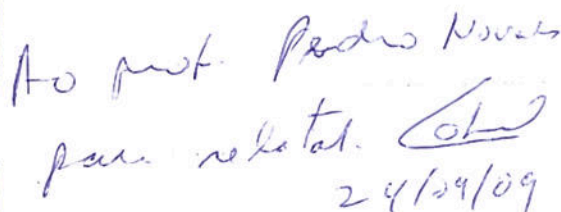 Ao prof. Pedro Novais
para relatar.
24/09/09